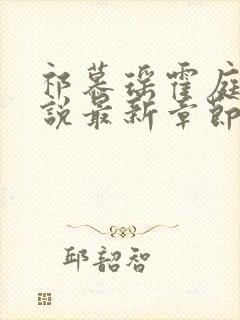 祁慕瑶霍庭
说最新章节
邱韶智